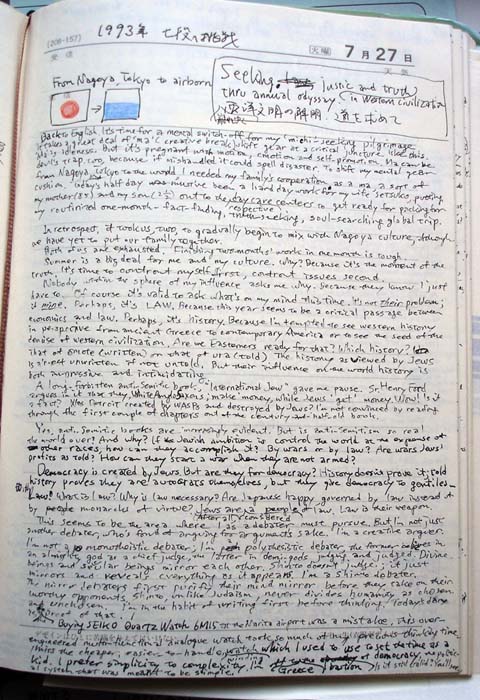 1993年 七段への挑戦
(208-157)
受信
火曜 7月27日
天気
From Nagoya, Tokyo to airborn
Seeking justice and truth
thru annual odyssey (in Western civilization
道を求めて
Back to English. It's time for a mental switch-off for my "michi-seeking" pilgrimage.
It takes a great deal of "ma" (creative break) to shift gear at a critical juncture like this.
Ma is idleness. But it's pregnant with motion, emotion and self-promotion. Ma can be
devil's trap, too, because if mishandled it could spell disaster. To shift my mental gear
from Nagoya Tokyo to the world I needed my family's cooperation as a ma, a sort of
cushion. Today's half day was must've been a hard day work for my wife Setsuko, putting
my mother (85) and my son (2½) out to the day care centers to get ready for packing for
my routinized one-month fact-finding, truth-seeking, soul-searching global trip.
In retrospect, it took us, two, to gradually begin to mix with Nagoya culture, though
we have yet to put our family together.
Both of us are exhausted. Finishing two months' work in one month is tough.
Summer is a big deal for me and my culture. Why? Because it's the moment of the
truth. It's time to confront myself first, confront issues second.
Nobody within the sphere of my influence asks me why. Because they know I just
have to. Of course it's valid to ask what's on my mind this time. It's not their problem;
it's mine. Perhaps, it's LAW. Because this year seems to be a critical passage between
economics and law. Perhaps, it's history. Because I'm tempted to see western history
in perspective from ancient Greece to contemporary America or to see the seed of the
demise of western civilization. Are we Easterners ready for that? Which history?
That of omote (written) or that of ura (told) The history as viewed by Jews
is direct unwritten if not untold. But their influence on the world history is
both impressive and intimidating.
A long-forbidden anti-Semitic book, "International Jew" gave me pause. Sr. Henry Ford
argues in it that they, while Anglo-Saxons, make money, while Jews 'get' money. Wow! Is it
fair? Was Detroit created by WASPs and destroyed by Jews? I'm not convinced by reading
through the first couple of chapters out of the century-and-half-old book.
Yes, anti-Semitic books are increasingly evident. But is anti-semitism so real
the world over? And why? If the Jewish ambition is control the world at the expense of
other races, how can they accomplish it? By wars or by law? Are wars Jews'
profits as told? How can they start a war when they are not armed?
Democracy is created by Jews. But are they for democracy? History doesn't prove it; told
history proves they are autocrats themselves, but they give democracy to gentiles.
Law! What is law? Why is law necessary? Are Japanese happy governed by law instead of
by people monarchs of virtue? Jews are a people of law. Law is their weapon.
After all, considered
This seems to be the area where I as a debater must pursue. But I'm not just
another debater, who's fond of arguing for argument's sake. I'm a creative arguer.
I'm not a monotheistic debater; I'm polytheistic debater, the former
an almighty god as a chief judge, latter in demi-gods judging and judged. Divine
beings and secular beings mirror each other. Shinto doesn't judge; it just
mirrors and reveals everything as it appears. I'm a Shinto debater.
The mirror debaters first purify their mind mirror before they take on their
worthy opponents. Shinto, unlike Judaism, never divides humanity as chosen
and unchosen. I'm in the habit of writing first before thinking. Today's diary
Buying SEIKO Quartz Watch at Narita airport was a mistake. This over-
engineered multi-functional analogue watch took so much of my precious thinking time.
I miss the cheaper, easier to handle watch which I used to use to set the time as a
kid. I prefer simplicity to complexity.
that was meant to be simple.